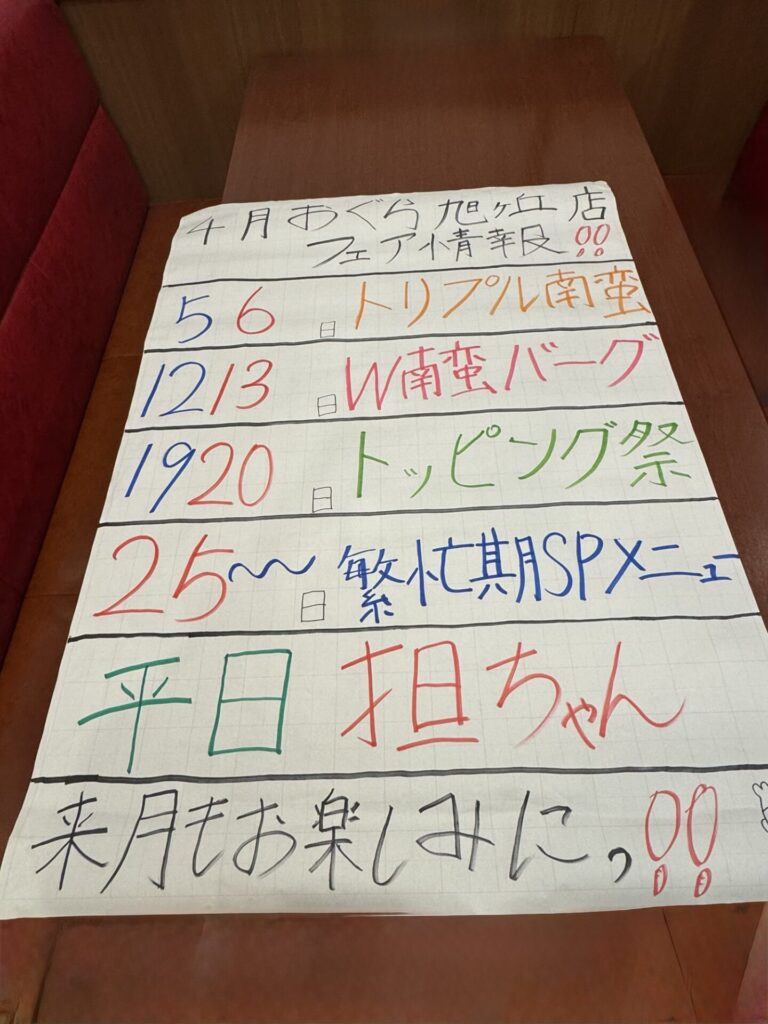 4月 おぐら 旭ヶ丘 店
フェア情報!!
5 6日 トリプル南蛮
12 13日 W南蛮バーグ
19 20日 トッピング祭
25〜日 繁忙期SPメニュー
平日 担ちゃん
来月もお楽しみにっ!!